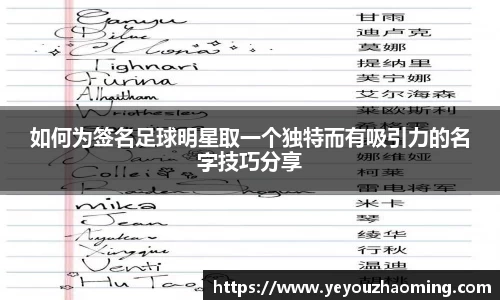 Ganyu 甘雨
Diluc 迪卢克
Mona 莫娜
Tighnari 提纳里
Furina 芙宁娜
Alhaitham 艾尔海森
Wriothesley 莱欧斯利
如何为签名足球明星取一个独特而有吸引力的名
字技巧分享
娜维娅
Collei 柯莱
Raiden Shogun 雷电将军
mika 米卡
Jean 琴
Ayaka 绫华
Xingqiu 行秋
Venti 温迪
Hu Tao
https://www.yeyouzhaoming.com